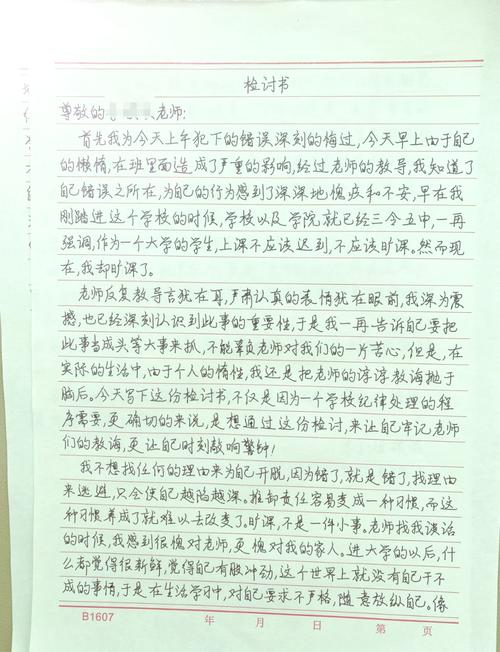 检讨书
尊敬的 老师:
首先我为今天上午犯下的错误深刻的悔过,今天早上由于自己
的懒惰,在班里面造成了严重的影响,经过老师的教导,我知道了
自己错误之所在,为自己的行为感到了深深地愧疚和不安,早在我
刚踏进这个学校的时候,学校以及学院就已经三令五中,一再
强调,作为一个大学的学生,上课不应该迟到,不应该旷课。然而现
在,我却旷课了。
老师反复教导言犹在耳,严肃认真的表情犹在眼前,我深为震
撼,也已经深刻认识到此事的重要性,于是我一再告诉自己要把
此事当成头等大事来抓,不能辜负老师对我们的一片苦心,但是,在
实际的生活中,由于个人的惰性,我还是把老师的淳淳教诲抛于
脑后。今天写下这份检讨书,不仅是因为一个学校纪律处理的程
序需要,更确切的来说,是想通过这份检讨,来让自己牢记老师
们的教诲,更让自己时刻敲响警钟!
我不想找任何的理由来为自己开脱,因为错了,就是错了,找理由
来逃避,只会使自己越陷越深。推卸责任容易变成一种习惯,而这
种习惯养成了就难以去改变了。旷课,不是一件小事。老师找我谈话
的时候,我感到很愧对老师,更愧对我的家人。进大学的以后,什
么都觉得很新鲜,觉得自己有股冲动,这个世界上就没有自己干不
成的事情,于是在生活学习中,对自己要求不严格,随意放纵自己。像
B1607 年 月 日 第 页